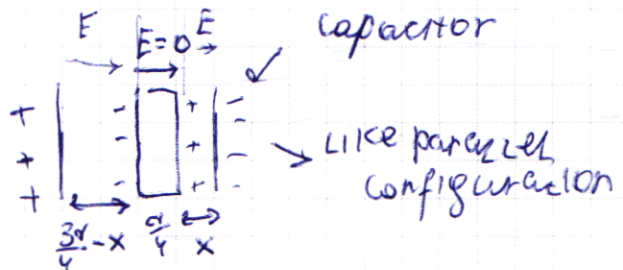 E E=0 E capacitor
+ - + -
+ - + -
+ - + -
Like parallel
configuration
3d/4 - x d/4 x